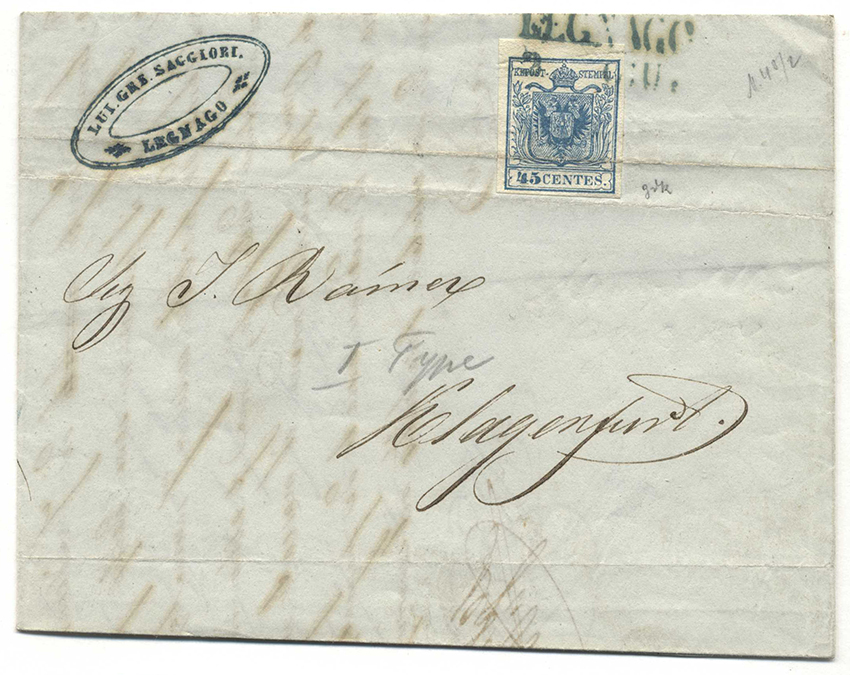 LUI. GBB. SAGGIORI.
LEGNAGO
LEGNAGO
GIU.
KKPOST-STEMPEL
45 CENTES.
Sig J. Rainer
I Type
Klagenfurt.